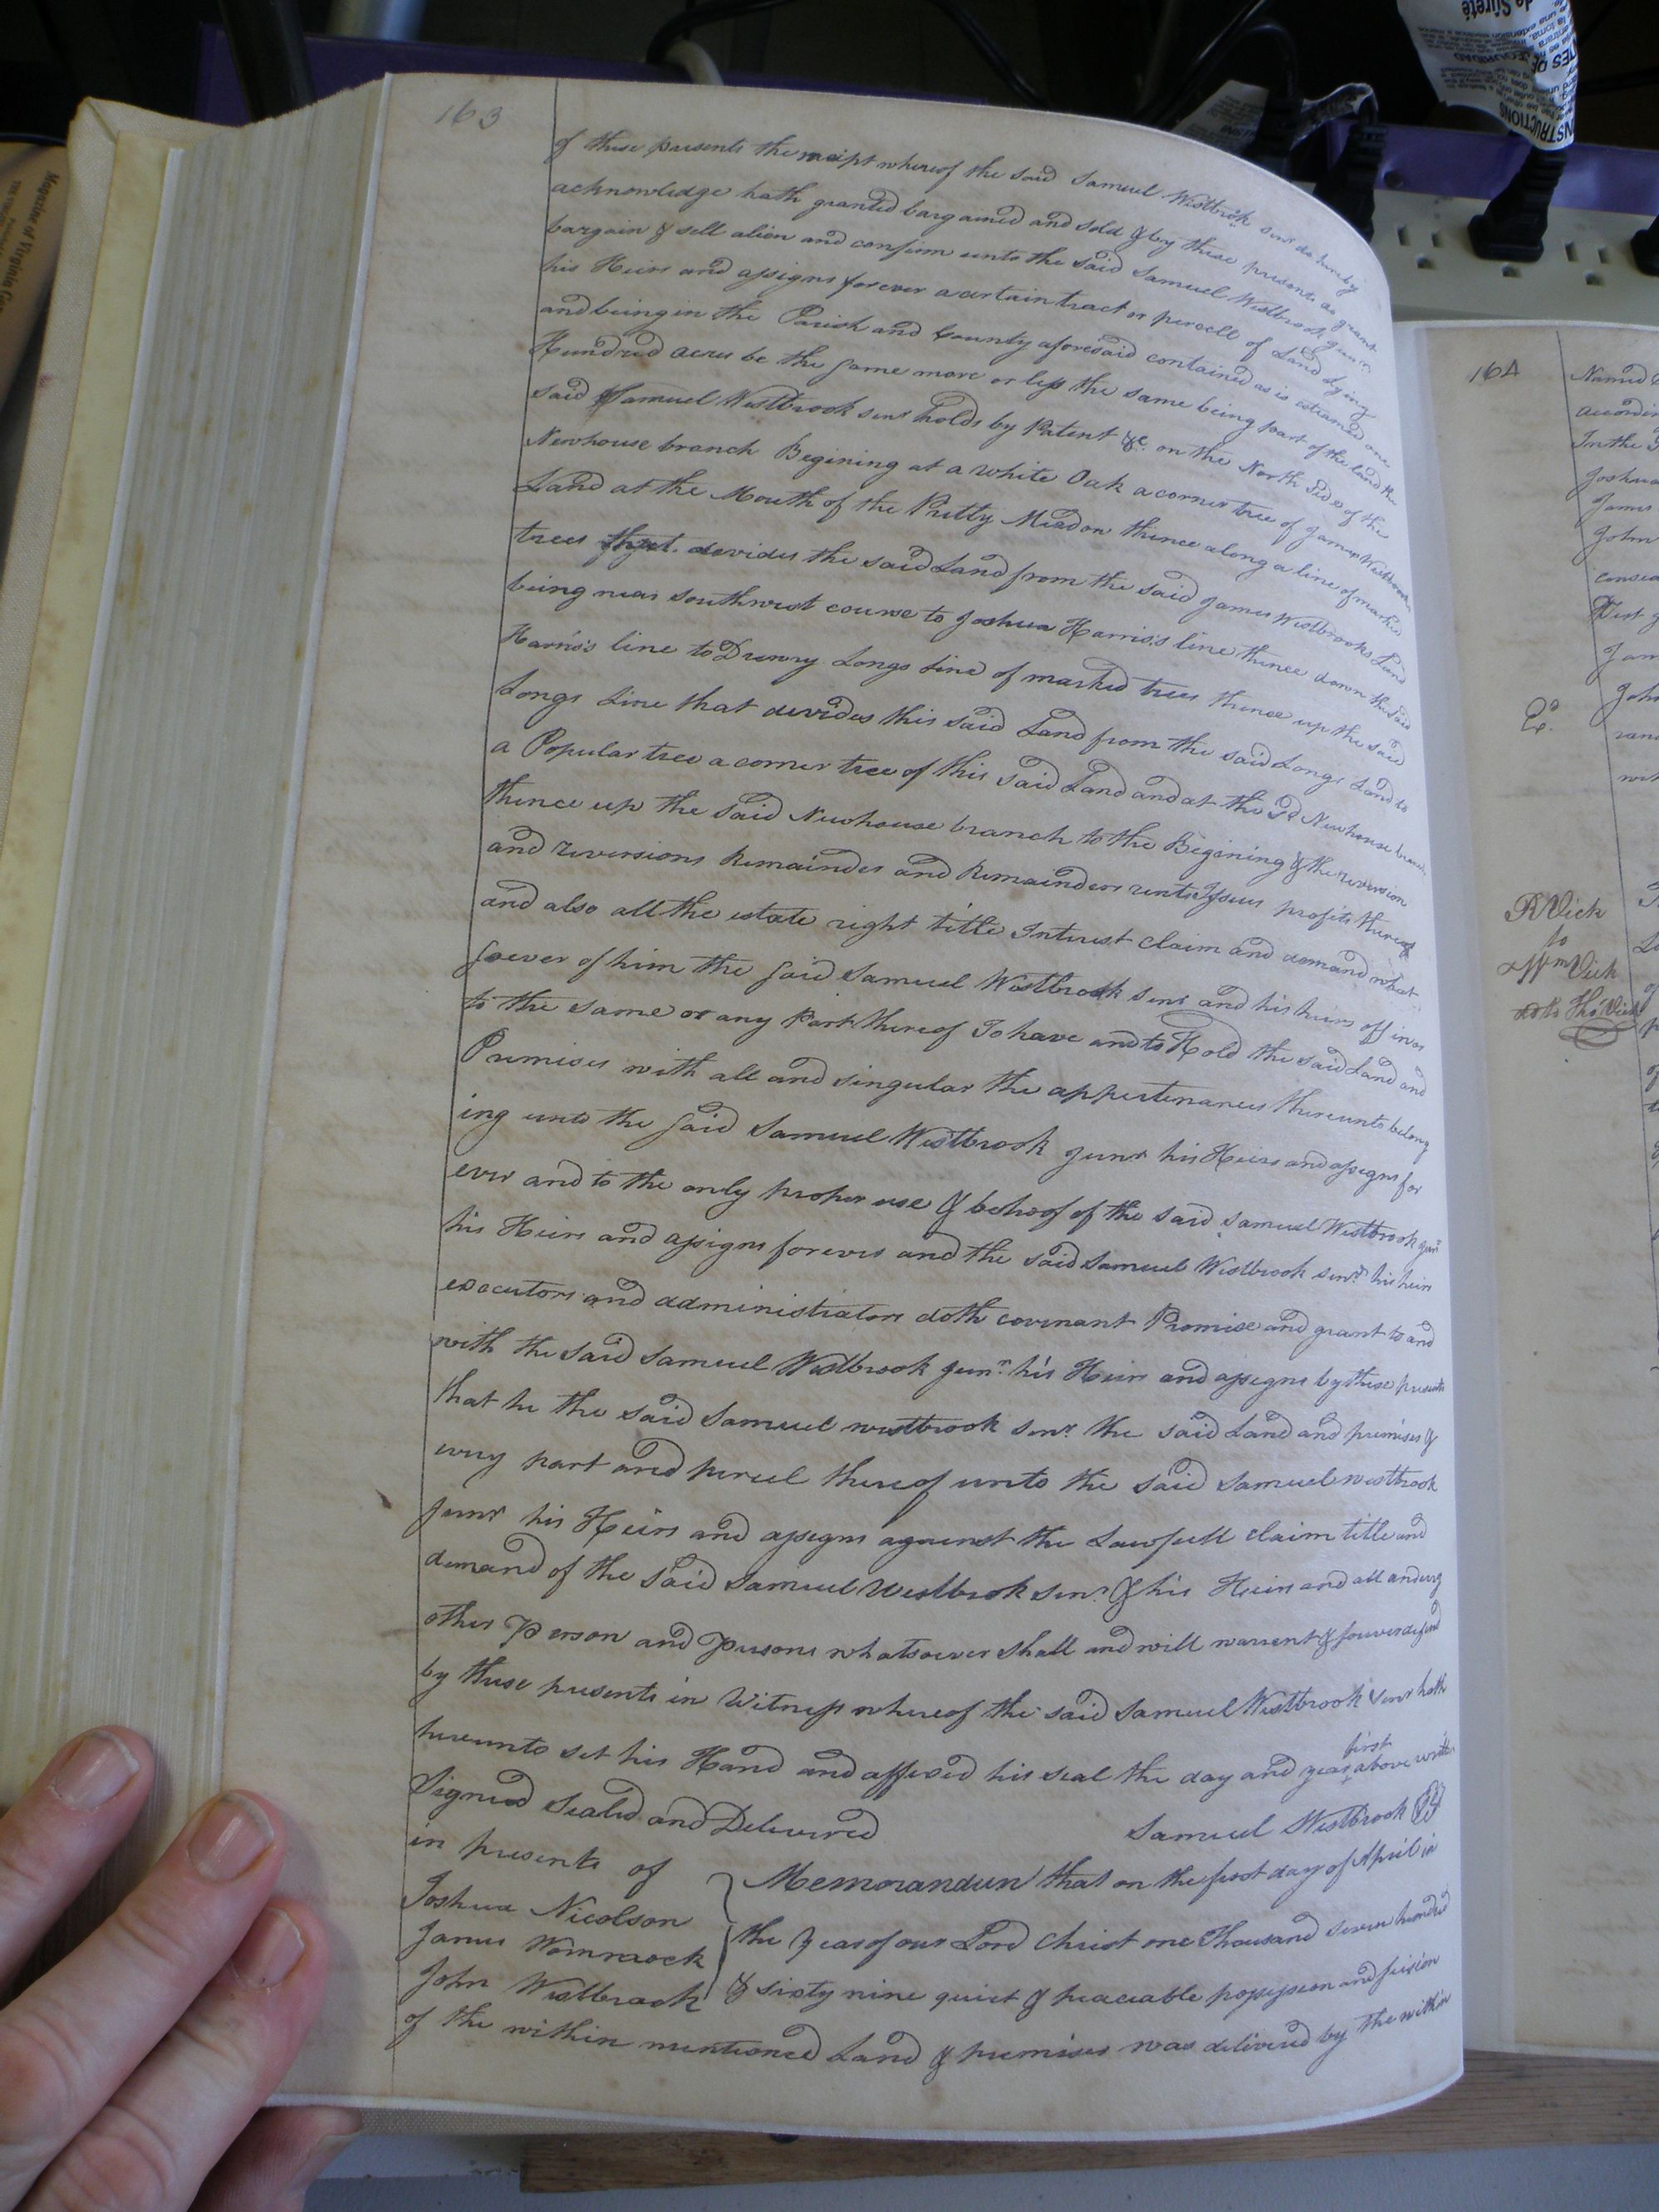 163
of these presents the receipt whereof the said Samuel Westbrook senr do hereby
acknowledge hath granted bargained and sold & by these presents do grant
bargain & sell alien and confirm unto the said Samuel Westbrook junr
his Heirs and assigns forever a certain tract or percell of Land lying
and being in the Parish and County aforesaid contained as is esteamed one
Hundred acres be the same more or less the same being part of the land the
said Samuel Westbrook senr holds by Patent &c. on the North Side of the
Newhouse branch Begining at a white Oak a corner tree of James Westbrooks
Land at the Mouth of the Pritty Meadow thence along a line of marked
trees that devides the said Land from the said James Westbrooks Land
being near southwest course to Joshua Harris's line thence down the said
Harris's line to Drewry Longs line of marked trees thence up the said
Longs Line that devides this said Land from the said Longs Land to
a Popular tree a corner tree of this said Land and at the Sd Newhouse branch
thence up the said Newhouse branch to the Begining & the reversion
and reversions Remainder and Remainders rents Issues profits thereof
and also all the estate right title Interest claim and demand what
soever of him the said Samuel Westbrook senr and his heirs off in or
to the same or any Part thereof To have and to Hold the said Land and
Premises with all and singular the appertenances thereunto belong
ing unto the said Samuel Westbrook junr his Heirs and assigns for
ever and to the only proper use & behoof of the said Samuel Westbrook junr
his Heirs and assigns forever and the said Samuel Westbrook senr his heirs
executors and administrators doth covenant Promise and grant to and
with the said Samuel Westbrook junr. his Heirs and assigns by these presents
that he the said Samuel westbrook senr the said Land and premises &
every part and percel thereof unto the said Samuel westbrook
junr his Heirs and assigns against the Lawfull claim title and
demand of the said Samuel Westbrook senr. & his Heirs and all and every
other Person and Persons whatsoever shall and will warrent & forever defend
by these presents in Witness whereof the said Samuel Westbrook senr hath
hereunto set his Hand and affixed his seal the day and year first above written
Signed Sealed and Delivered
Samuel Westbrook
in presents of
Joshua Nicolson
James Wommock
John Westbrook
Memorandum that on the first day of April in
the Year of our Lord Christ one Thousand seven hundred
& sixty nine quiet & peaceable possession and seision
of the within mentioned Land & premises was delivered by the within
164
Named
Joshua
James
John
John
RVick
to
Wm Vick
do to Tho Vick
Magazine of Virginia
de Sûreté
INSTRUCTIONS